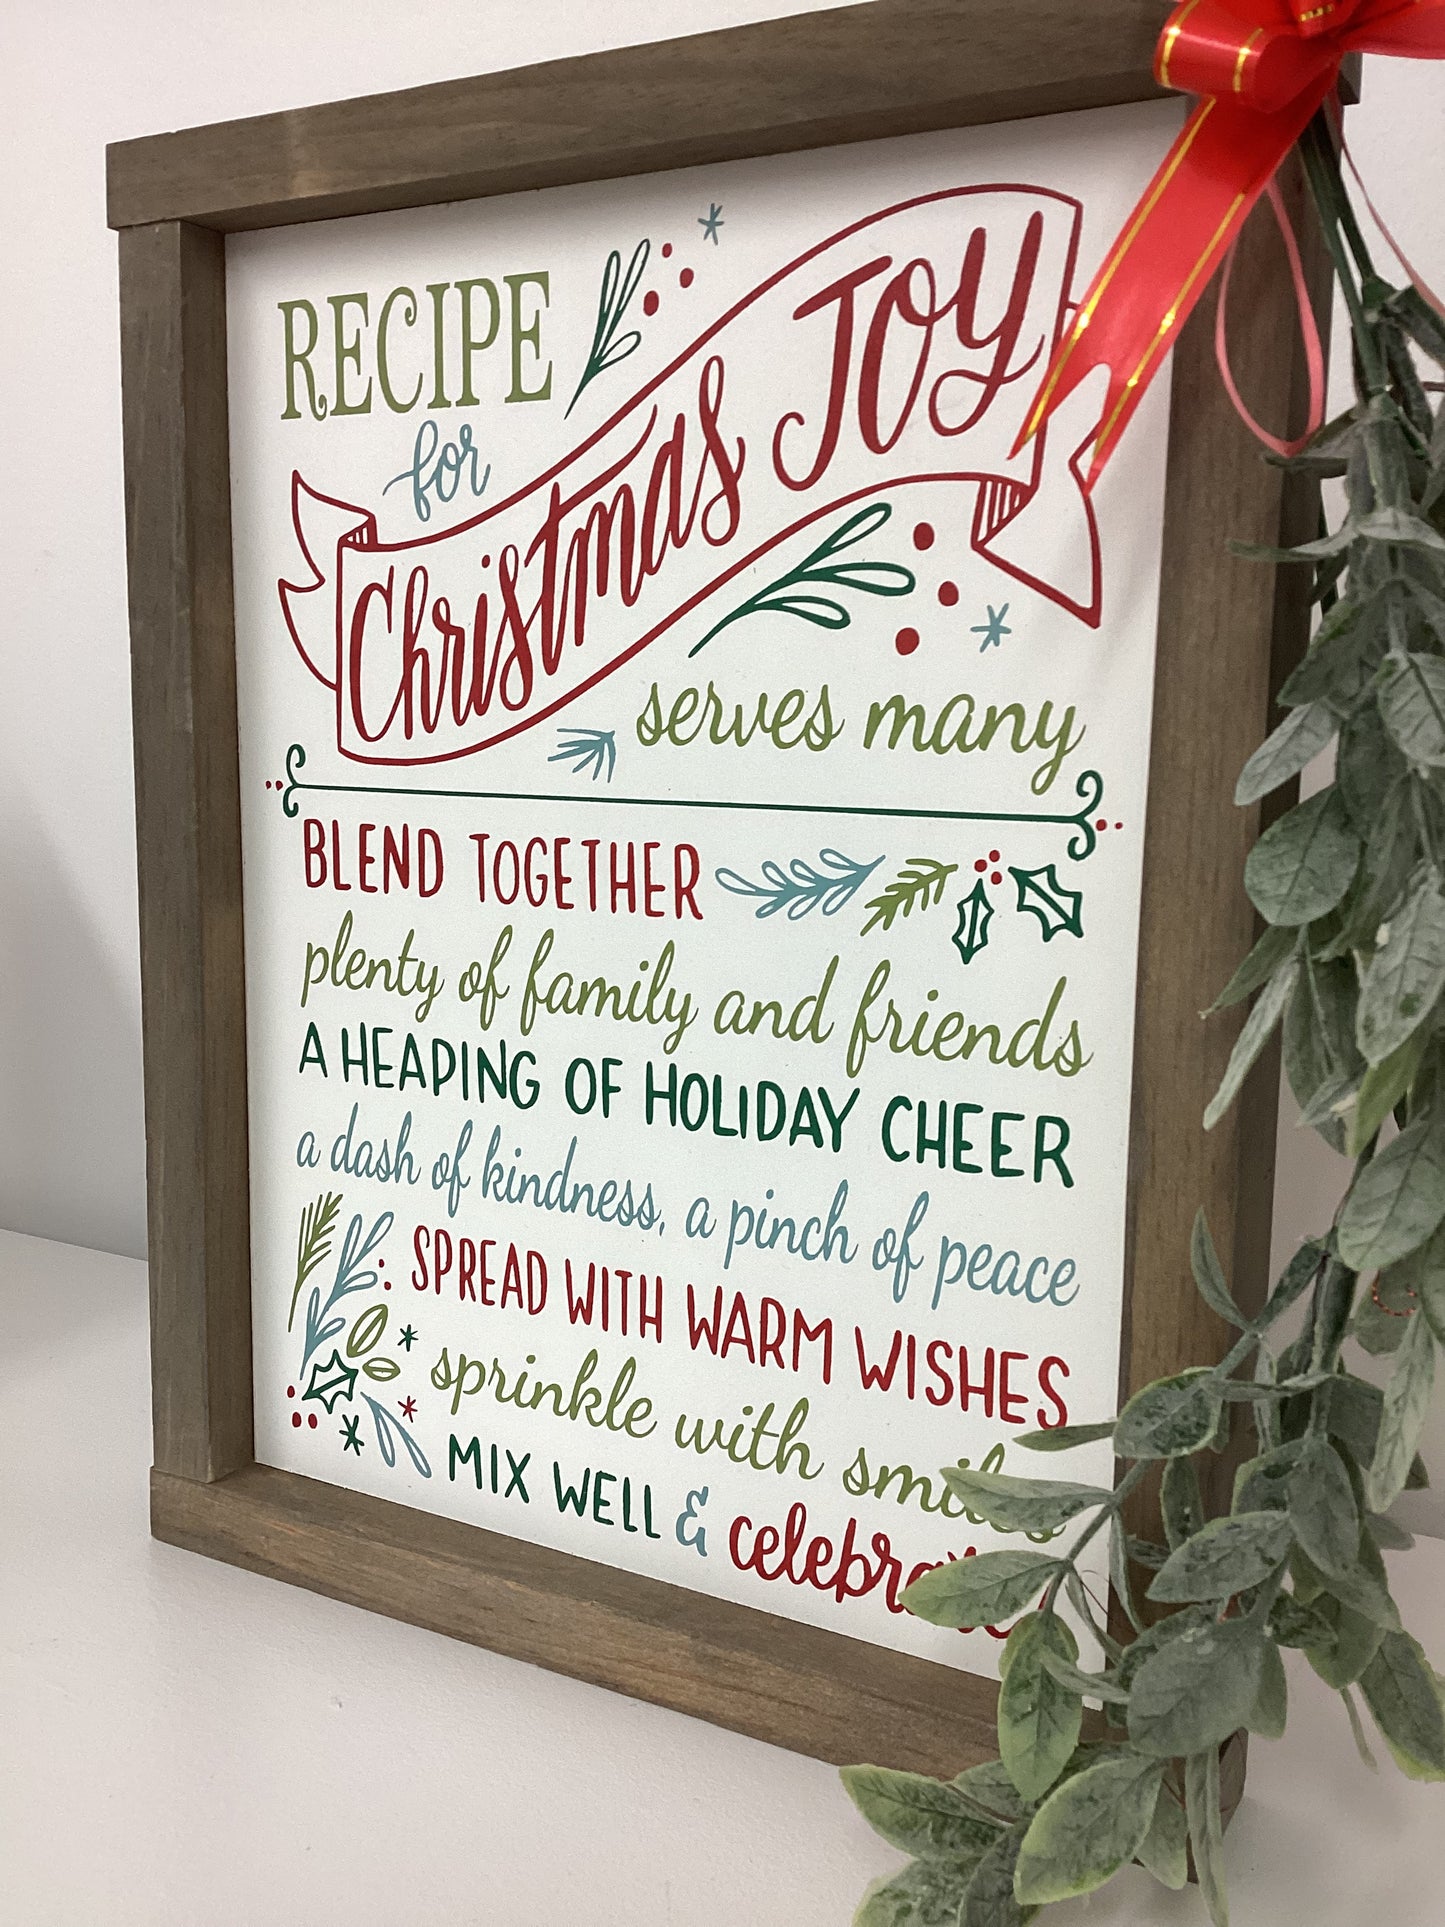 RECIPE
for
Christmas Joy
serves many
BLEND TOGETHER
plenty of family and friends
A HEAPING OF HOLIDAY CHEER
a dash of kindness, a pinch of peace
SPREAD WITH WARM WISHES
sprinkle with smiles
MIX WELL & celebrate